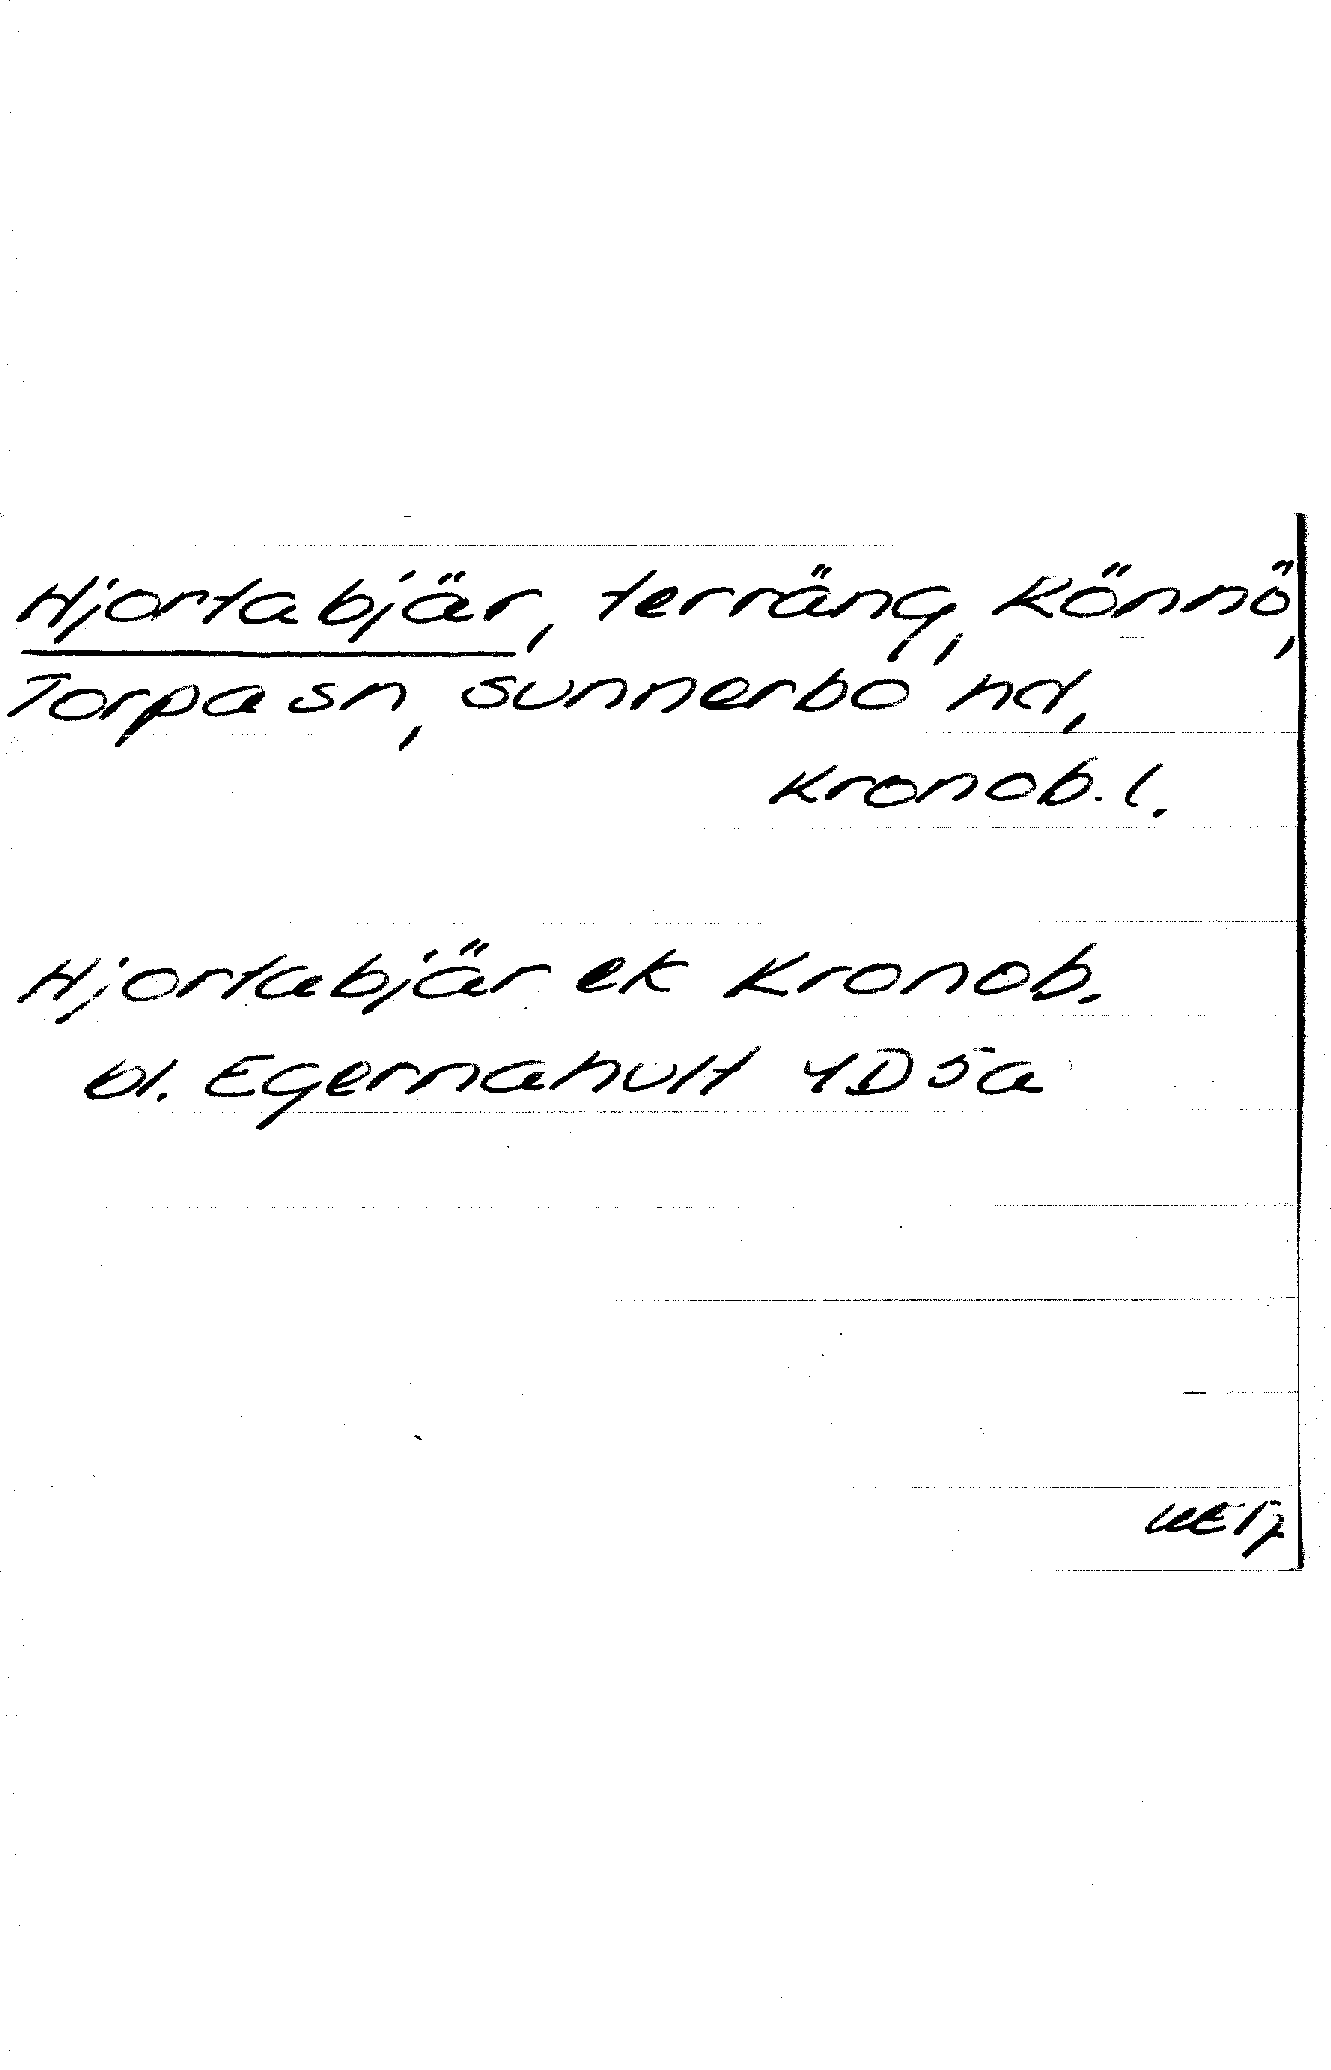 Hjortabjär, terräng, Könnö,
Torpa sn, Sunnerbo hd,
Kronob. l.
Hjortabjär ek Kronob.
bl. Egernahult 4D5a